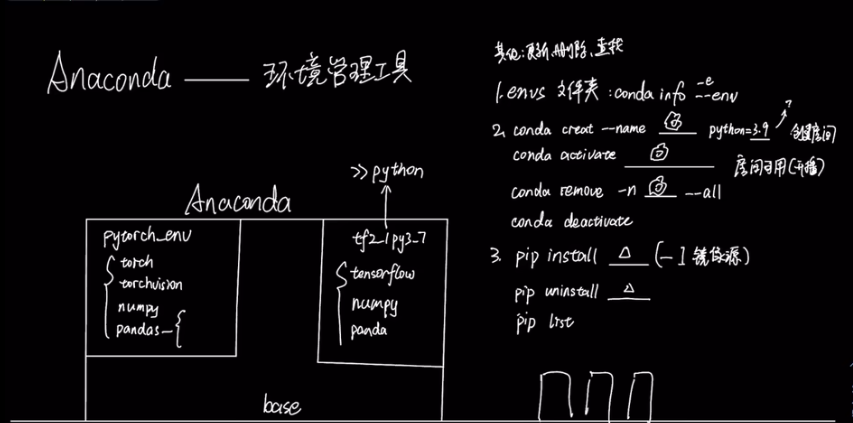 Anaconda —— 环境管理工具
其他:更新、删除、查找
1. envs 文件夹:conda info --env
-e
2. conda creat --name ____ python=3.9 创建房间
conda activate ____ 房间可用(开播)
conda remove -n ____ --all
conda deactivate
3. pip install △ (-i 镜像源)
pip uninstall △
pip list
>>python
Anaconda
pytorch_env
torch
torchvision
numpy
pandas
tf2_1py3_7
tensorflow
numpy
panda
base